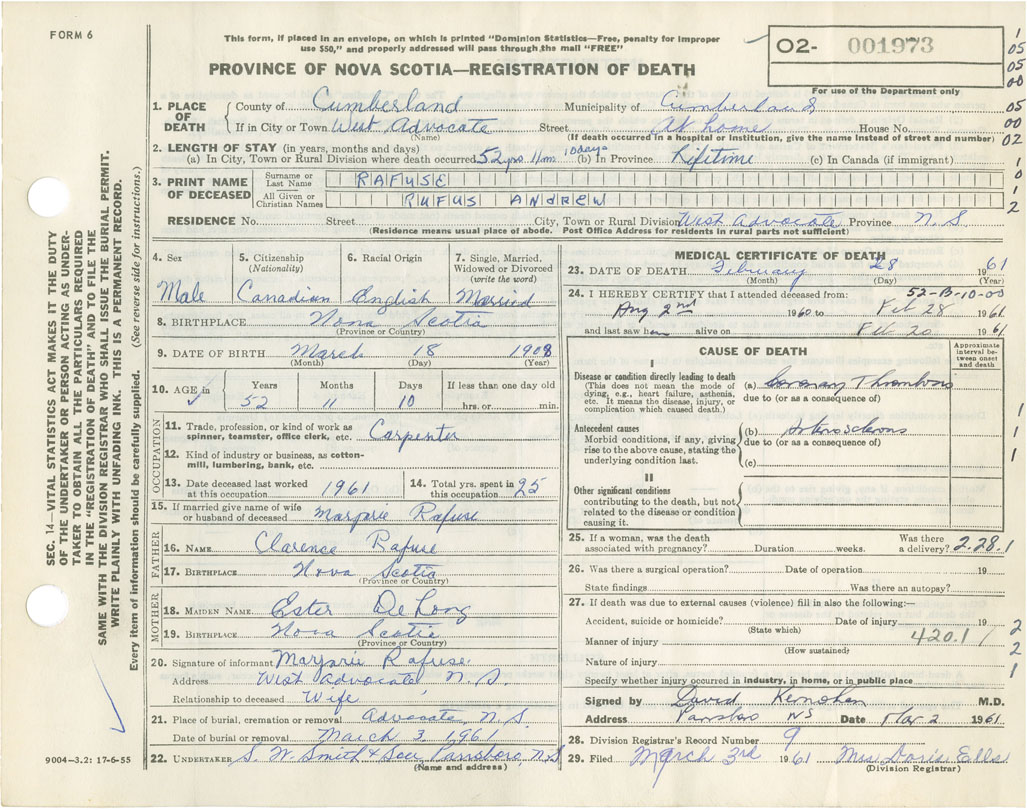 FORM 6
This form, if placed in an envelope, on which is printed "Dominion Statistics—Free, penalty for improper
use $50," and properly addressed will pass through the mail "FREE"
02- 001973
PROVINCE OF NOVA SCOTIA—REGISTRATION OF DEATH
For use of the Department only
1. PLACE OF DEATH County of Cumberland Municipality of Cumberland
If in City or Town West Advocate Street At home House No.
(Name) (If death occurred in a hospital or institution, give the name instead of street and number)
2. LENGTH OF STAY (in years, months and days)
(a) In City, Town or Rural Division where death occurred 52 yrs. 11 m. 10 days (b) In Province Lifetime (c) In Canada (if immigrant)
3. PRINT NAME OF DECEASED Surname or Last Name RAFUSE
All Given or Christian Names RUFUS ANDREW
RESIDENCE No. Street City, Town or Rural Division West Advocate Province N.S.
(Residence means usual place of abode. Post Office Address for residents in rural parts not sufficient)
4. Sex Male
5. Citizenship (Nationality) Canadian
6. Racial Origin English
7. Single, Married, Widowed or Divorced (write the word) Married
8. BIRTHPLACE Nova Scotia
(Province or Country)
9. DATE OF BIRTH March 18 1908
(Month) (Day) (Year)
10. AGE in Years Months Days If less than one day old
52 11 10 hrs. or min.
OCCUPATION
11. Trade, profession, or kind of work as spinner, teamster, office clerk, etc. Carpenter
12. Kind of industry or business, as cotton-mill, lumbering, bank, etc.
13. Date deceased last worked at this occupation 1961
14. Total yrs. spent in this occupation 25
15. If married give name of wife or husband of deceased Marjorie Rafuse
FATHER
16. NAME Clarence Rafuse
17. BIRTHPLACE Nova Scotia
(Province or Country)
MOTHER
18. MAIDEN NAME Ester DeLong
19. BIRTHPLACE Nova Scotia
(Province or Country)
20. Signature of informant Marjorie Rafuse
Address West Advocate, N.S.
Relationship to deceased Wife
21. Place of burial, cremation or removal Advocate, N.S.
Date of burial or removal March 3, 1961
22. UNDERTAKER S. W. Smith & Son, Parrsboro, N.S.
(Name and address)
MEDICAL CERTIFICATE OF DEATH
23. DATE OF DEATH February 28 1961
(Month) (Day) (Year)
52-B-10-00
24. I HEREBY CERTIFY that I attended deceased from:
Aug 2nd 1960 to Feb 28 1961
and last saw him alive on Feb 20 1961
CAUSE OF DEATH
Approximate interval between onset and death
I
Disease or condition directly leading to death (a) Coronary Thrombosis
(This does not mean the mode of dying, e.g., heart failure, asthenia, etc. It means the disease, injury, or complication which caused death.)
due to (or as a consequence of)
Antecedent causes (b) Arteriosclerosis
Morbid conditions, if any, giving rise to the above cause, stating the underlying condition last.
due to (or as a consequence of)
(c)
II
Other significant conditions
contributing to the death, but not related to the disease or condition causing it.
25. If a woman, was the death associated with pregnancy? Duration weeks. Was there a delivery? 2.28.1
26. Was there a surgical operation? Date of operation 19
State findings Was there an autopsy?
27. If death was due to external causes (violence) fill in also the following:—
Accident, suicide or homicide? Date of injury 19
(State which)
Manner of injury 420.1
(How sustained)
Nature of injury
Specify whether injury occurred in industry, in home, or in public place
Signed by David Kernohan M.D.
Address Parrsboro NS Date Mar 2 1961
28. Division Registrar's Record Number 9
29. Filed March 3rd 1961 Mrs Doris Ells
(Division Registrar)
SEC. 14—VITAL STATISTICS ACT MAKES IT THE DUTY
OF THE UNDERTAKER OR PERSON ACTING AS UNDER-
TAKER TO OBTAIN ALL THE PARTICULARS REQUIRED
IN THE "REGISTRATION OF DEATH" AND TO FILE THE
SAME WITH THE DIVISION REGISTRAR WHO SHALL ISSUE THE BURIAL PERMIT.
WRITE PLAINLY WITH UNFADING INK. THIS IS A PERMANENT RECORD.
Every item of information should be carefully supplied. (See reverse side for instructions.)
1
05
05
00
05
00
02
1
0
1
2
1
1
1
2
2
1
9004—3.2: 17-6-55